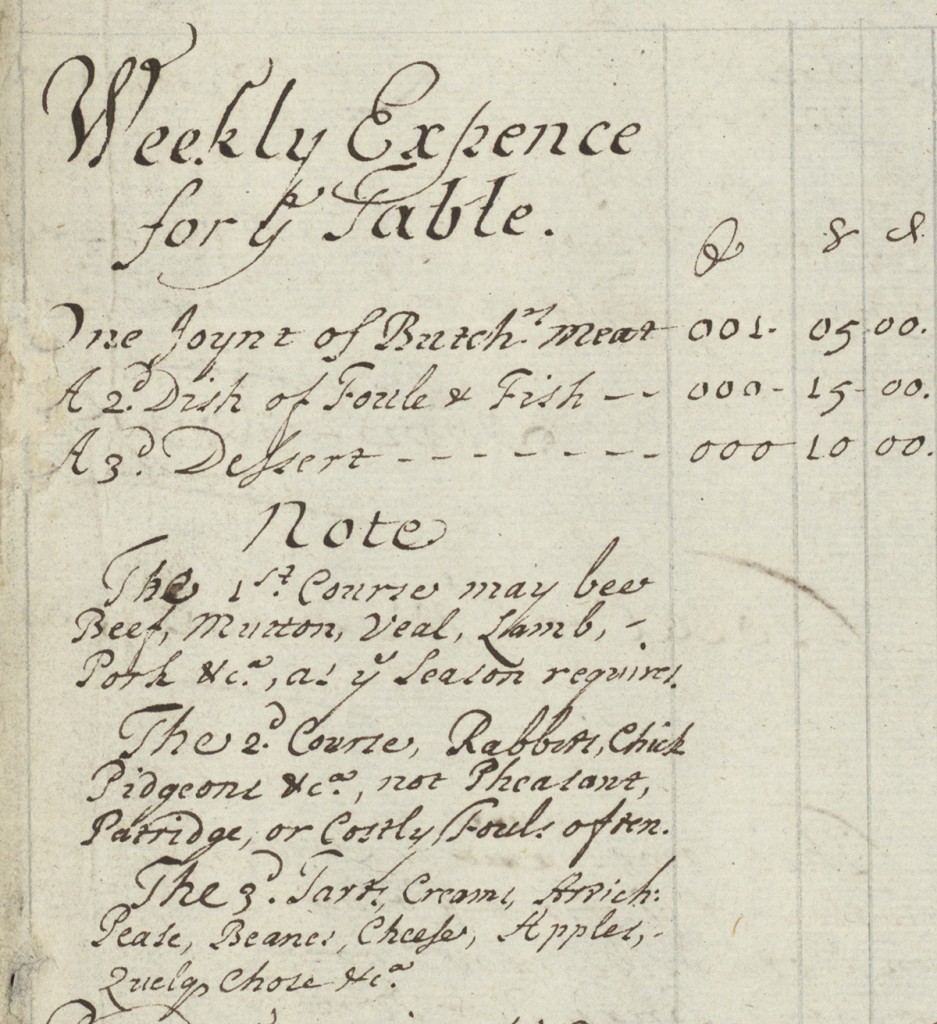 Weekly Expence
for yͤ Table.
£ s d
One Joynt of Butchʳˢ meat 001- 05 00.
A 2ᵈ. Dish of Foule & Fish -- 000- 15- 00.
A 3ᵈ. Dessert ------- 000 10 00.
Note
The 1ˢᵗ. Course may bee
Beef, Mutton, Veal, Lamb, -
Pork &cᵃ, as yͤ Season requires.
The 2ᵈ. Course, Rabbits, Chick
Pidgeons &cᵃ, not Pheasant,
Patridge, or Costly Fouls often.
The 3ᵈ. Tarts, Creams, Artich:
Pease, Beanes, Cheese, Apples, -
Quelq Chose &cᵃ